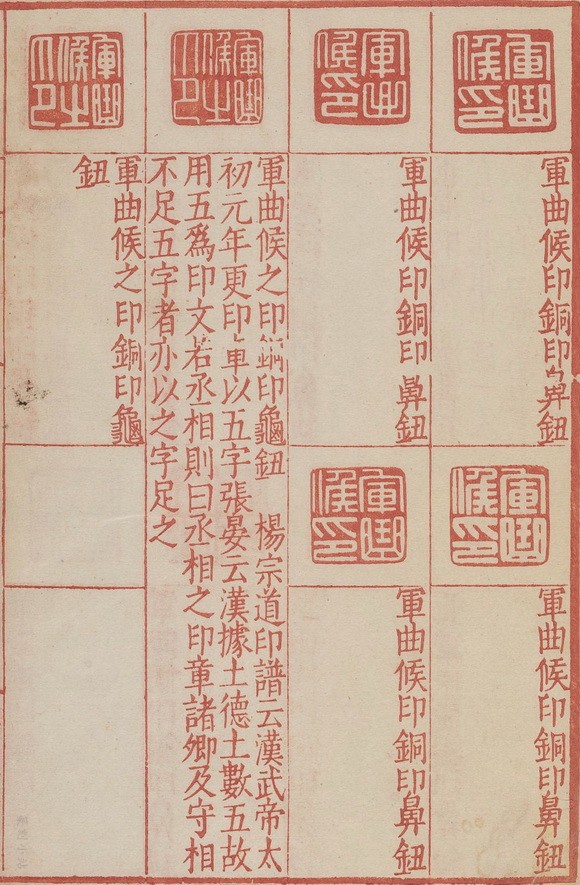 軍曲
候印
軍曲候印銅印鼻鈕
軍曲
候印
軍曲候印銅印鼻鈕
軍曲
候印
軍曲候印銅印鼻鈕
軍曲
候印
軍曲候印銅印鼻鈕
軍曲
候之
印
軍曲候之印銅印龜鈕　楊宗道印譜云漢武帝太
初元年更印章以五字張晏云漢據土德土數五故
用五爲印文若丞相則曰丞相之印章諸卿及守相
不足五字者亦以之字足之
軍曲
候之
印
軍曲候之印銅印龜
鈕